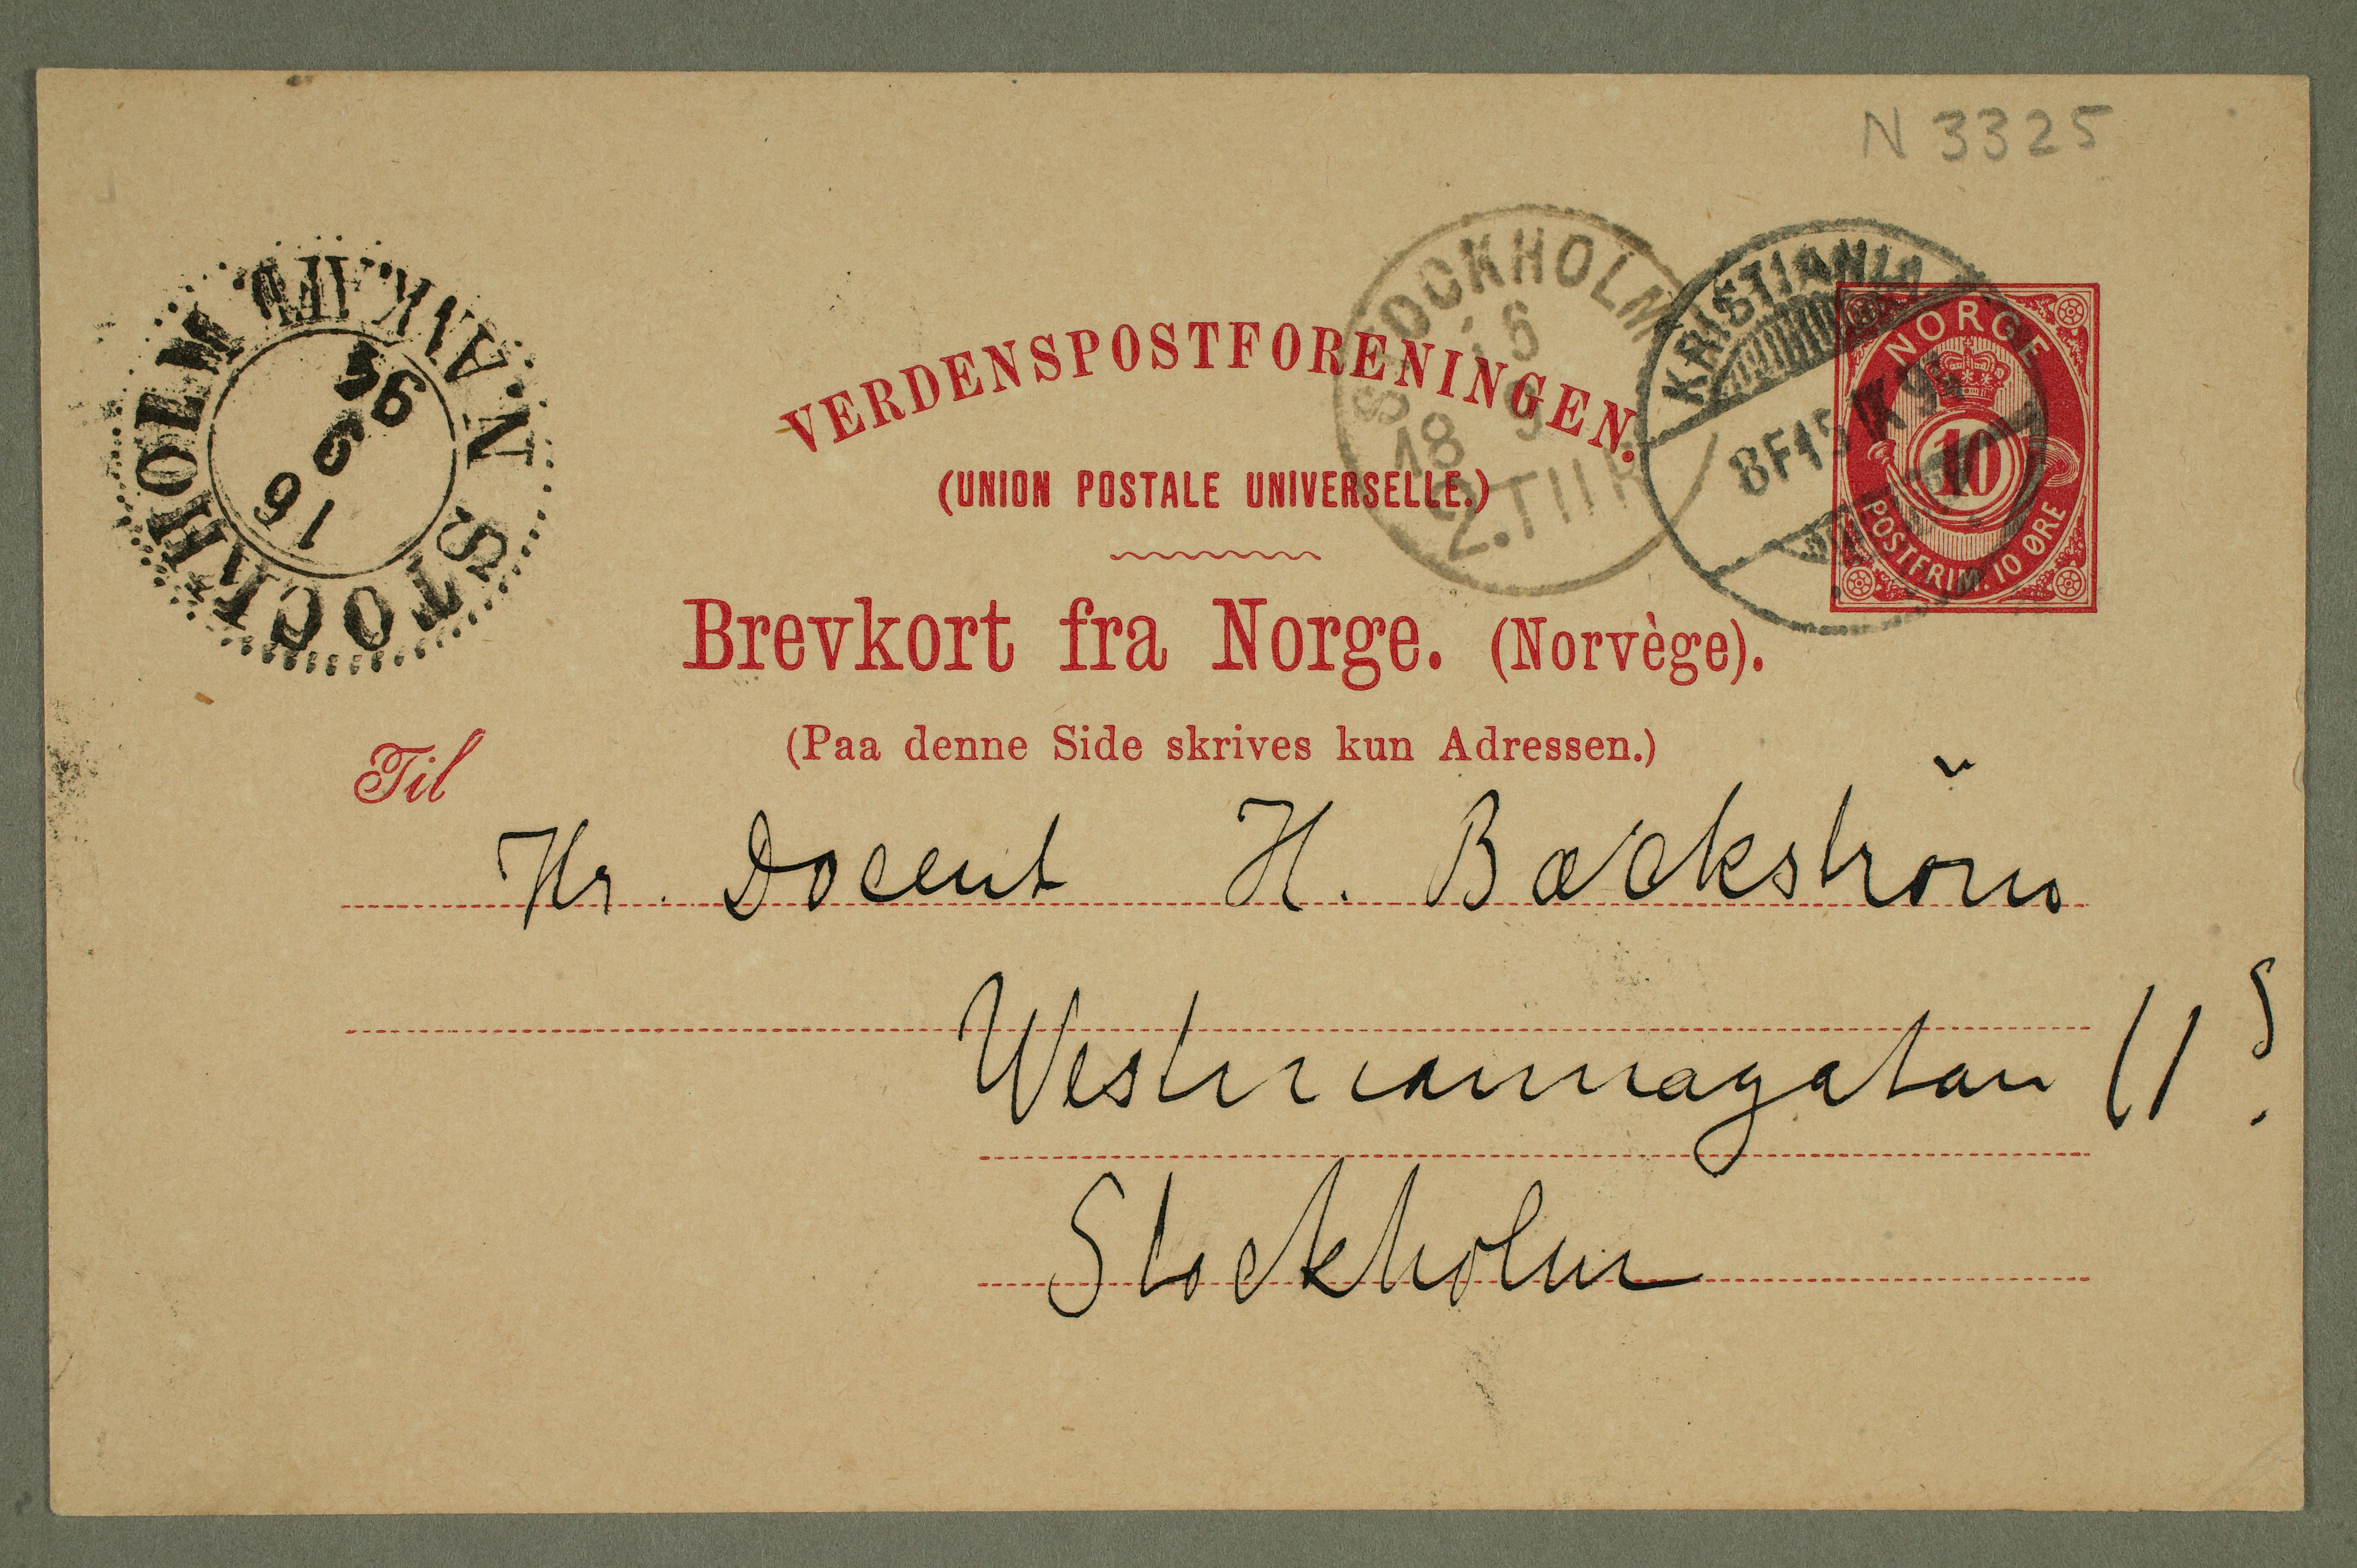 N 3325
STOCKHOLM
16
9
18
2.TUR
KRISTIANIA
8F15 IX 94
NORGE
10
POSTFRIM. 10 ØRE
N STOCKHOLM
16
9
94
VERDENSPOSTFORENINGEN.
(UNION POSTALE UNIVERSELLE.)
Brevkort fra Norge. (Norvège).
(Paa denne Side skrives kun Adressen.)
Til
Hr. Docent H. Bæckström
Westmannagatan 11
Stockholm